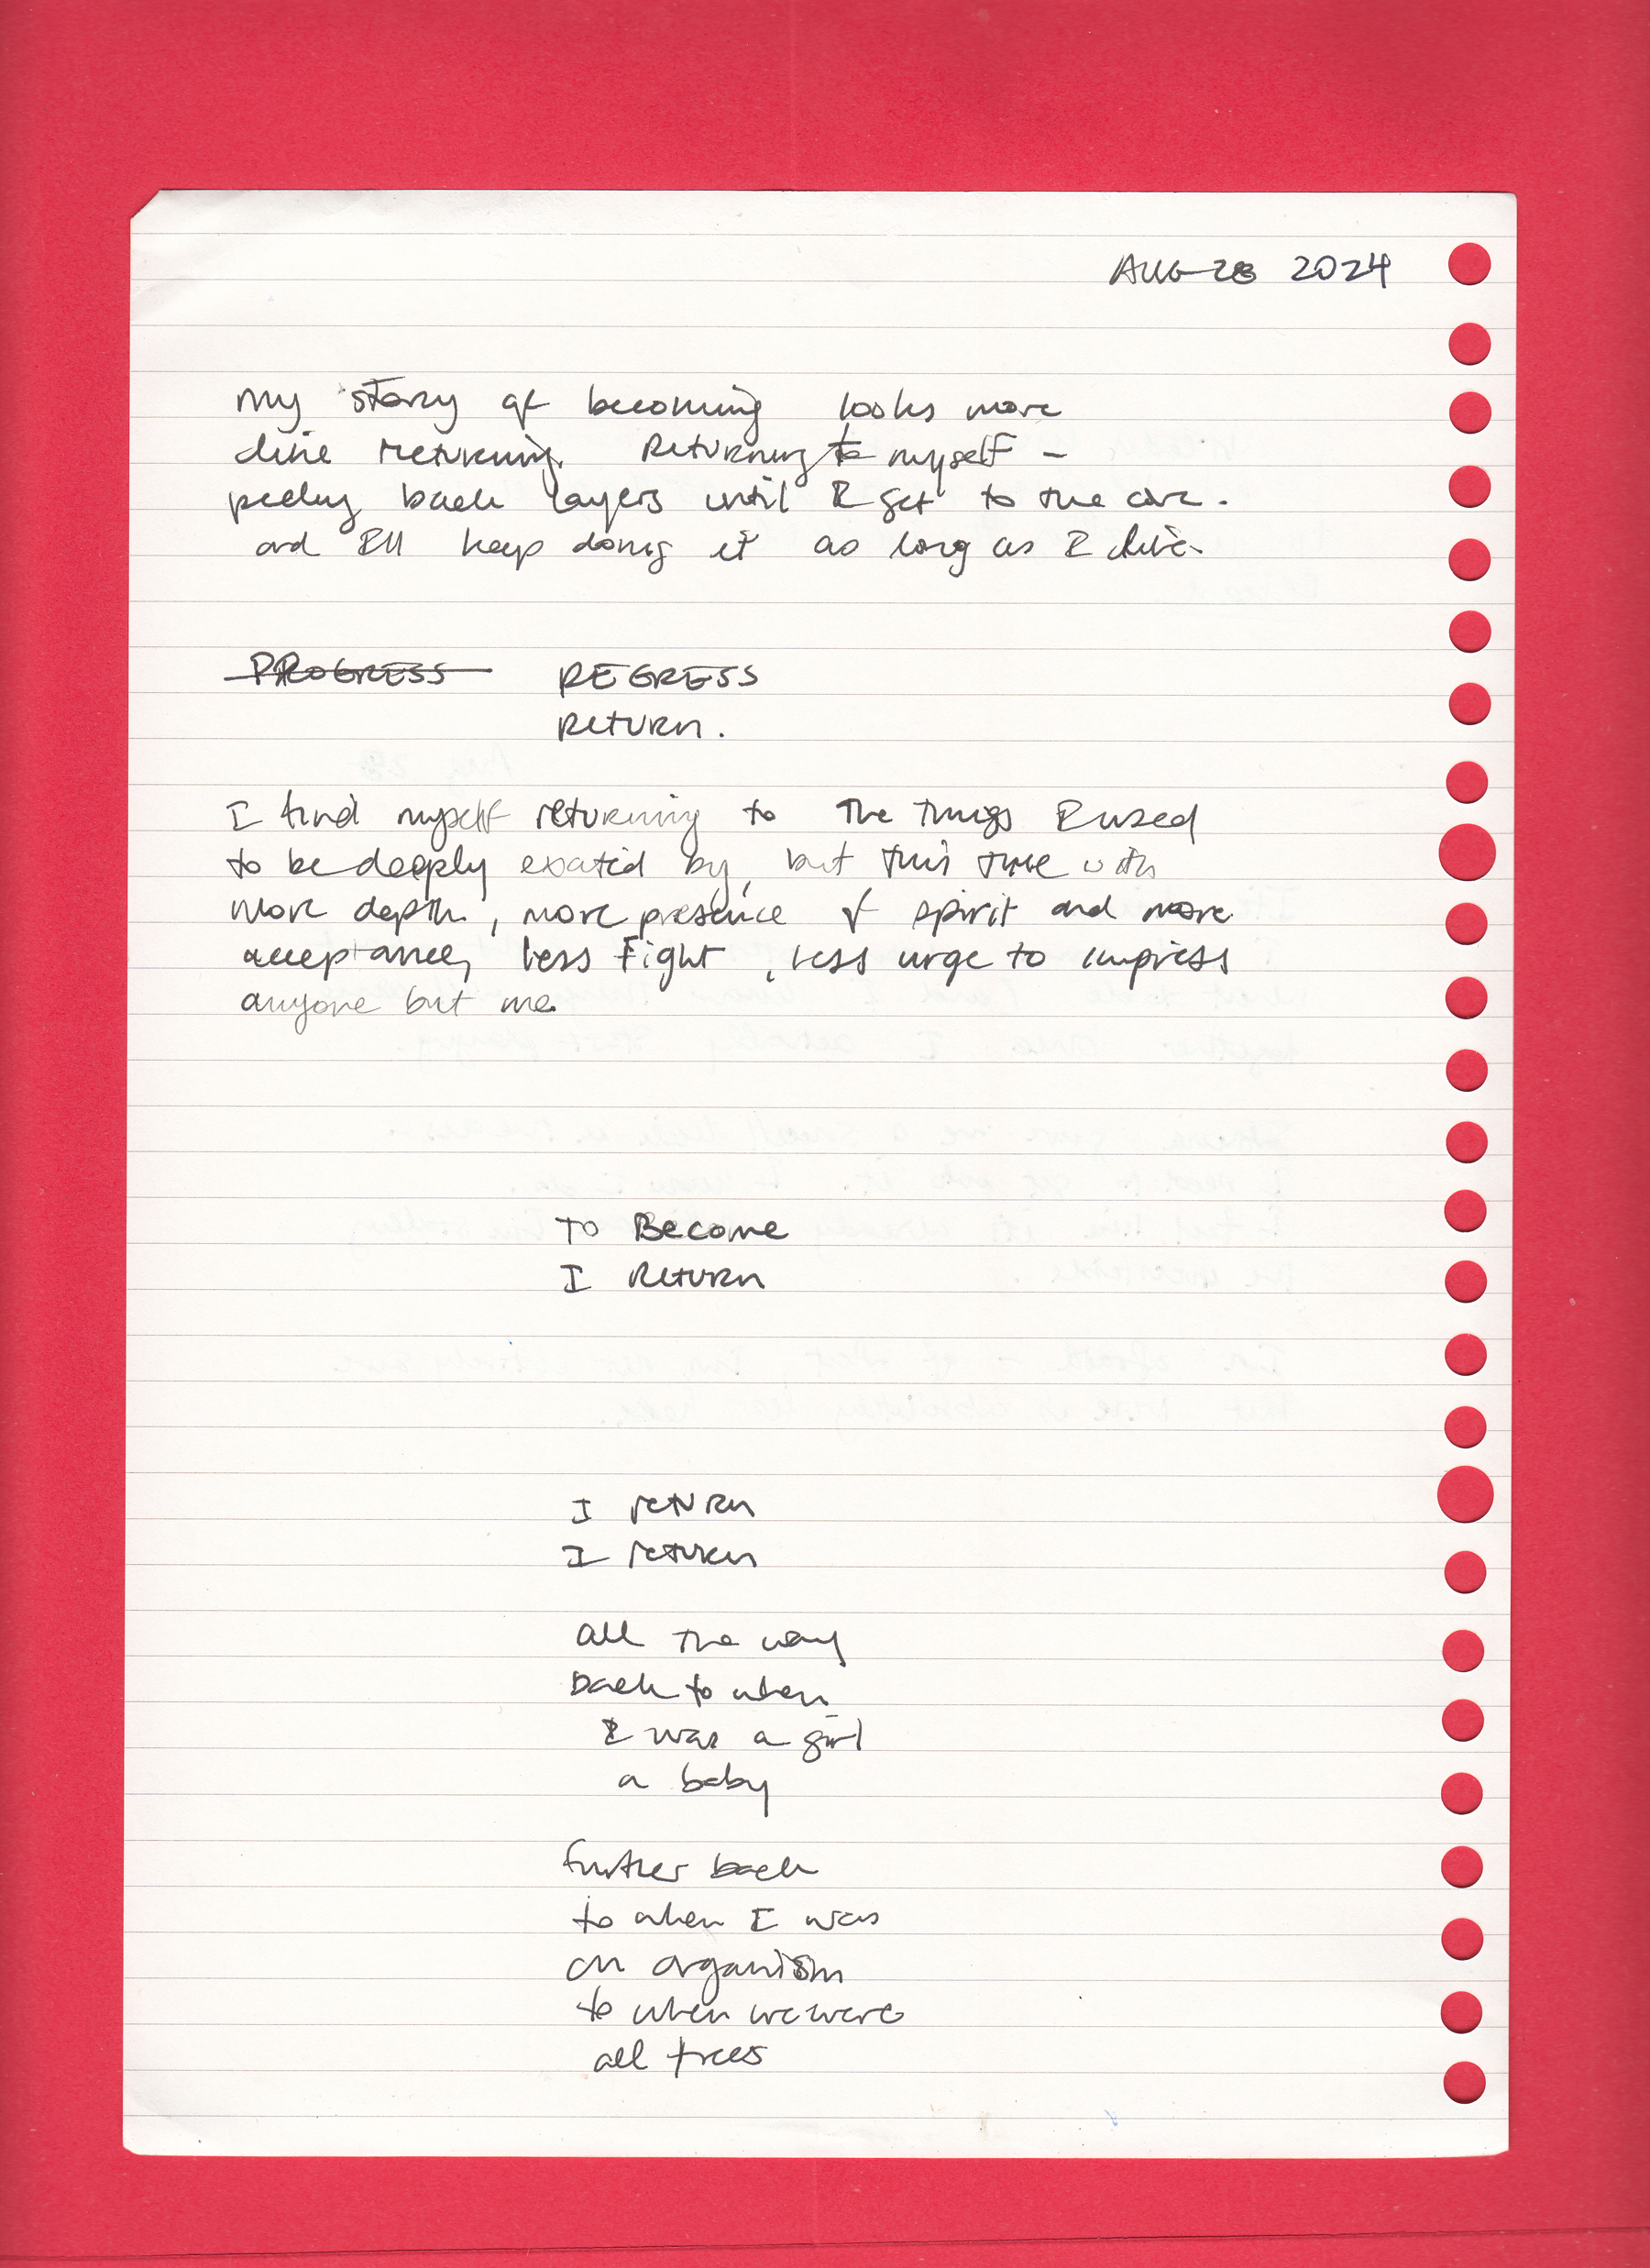 AUG 28 2024
my story of becoming looks more
like returning. Returning to myself -
peeling back layers until I get to the core.
and I'll keep doing it as long as I live.
PROGRESS REGRESS
RETURN.
I find myself returning to the things I used
to be deeply excited by, but this time with
more depth, more presence of spirit and more
acceptance, less fight, less urge to impress
anyone but me.
To Become
I Return
I return
I return
all the way
back to when
I was a girl
a baby
further back
to when I was
an organism
to when we were
all trees